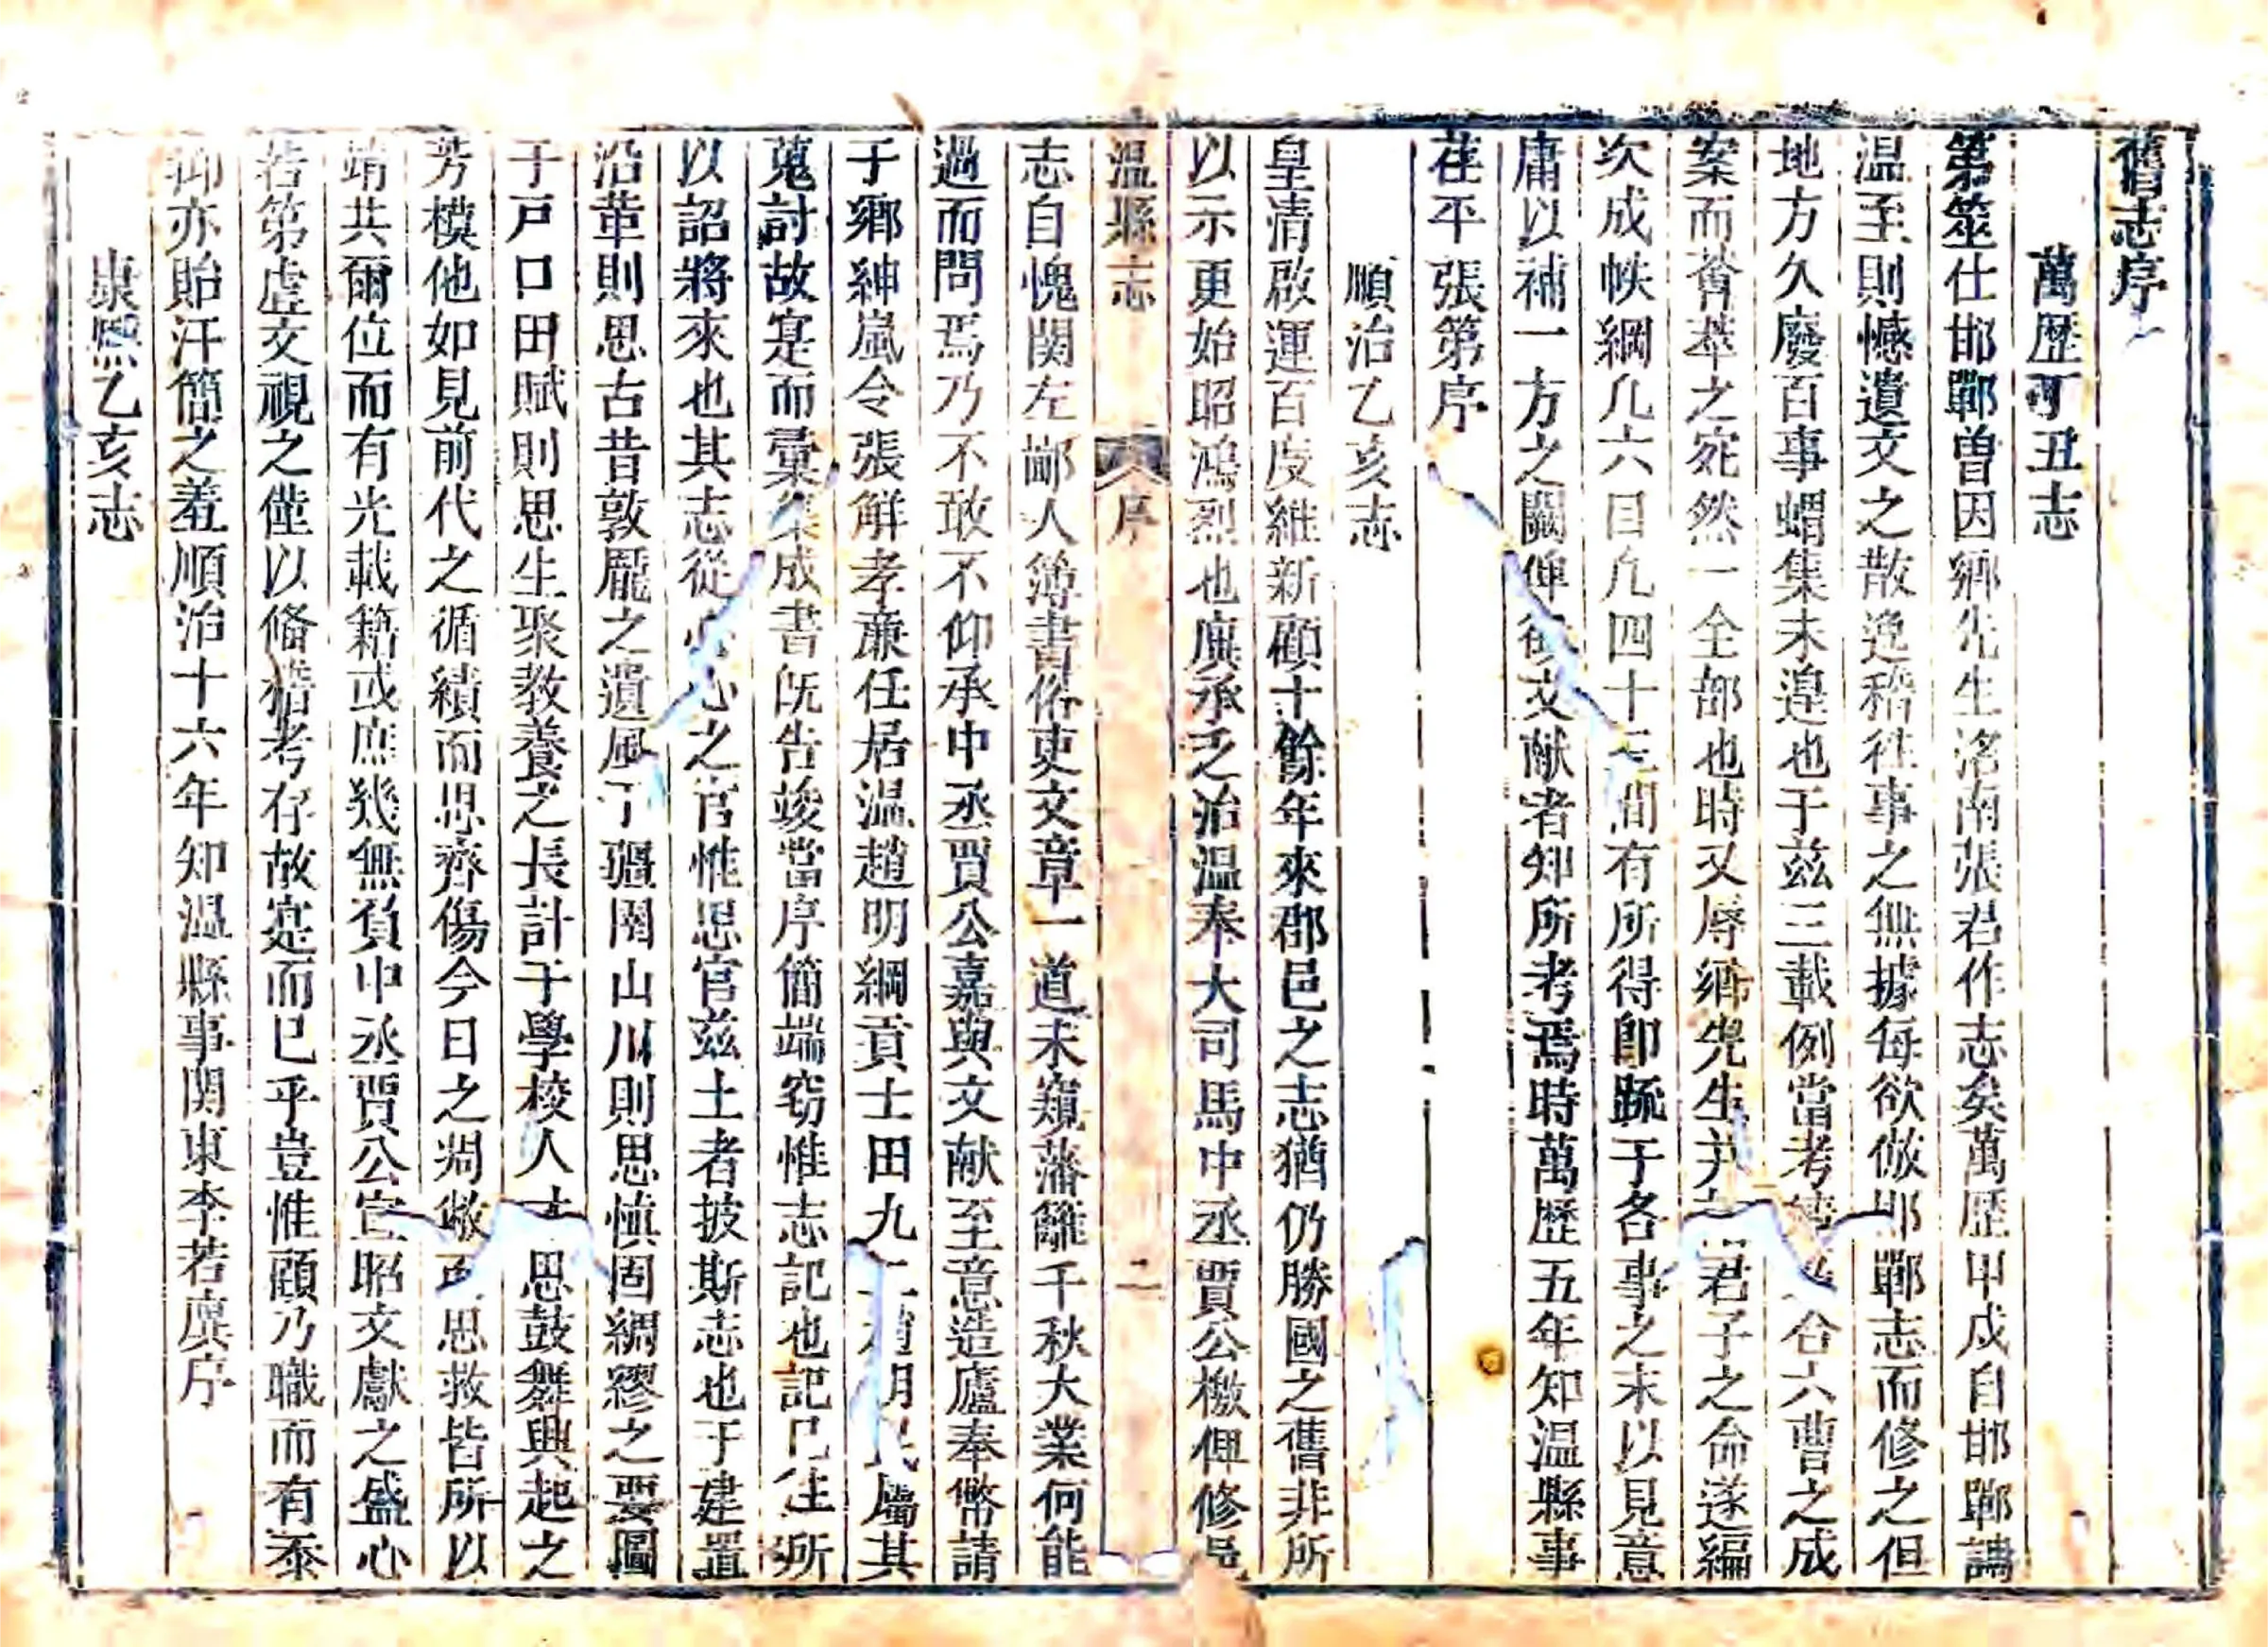 舊志序
萬歷丁丑志
第筮仕邯鄲曽因鄉先生洺南張君作志矣萬歷甲戌自邯鄲調
温至則憾遺文之散逸稽徃事之無據每欲倣邯鄲志而修之但
地方久廢百事蝟集未遑也于兹三載例當考 合六曹之成
案而薈萃之宛然一全部也時又辱鄉先生 君子之命遂編
次成帙綱凡六目凡四十三間有所得卽䟽于各事之末以見意
庸以補一方之闕俾 文献者知所考焉時萬歷五年知温縣事
茌平張第序
順治乙亥志
皇清啟運百度維新顧十餘年來郡邑之志猶仍勝國之舊非所
以示更始昭鴻烈也廙承乏治温奉大司馬中丞賈公檄俾修邑
温縣志 序 二
志自愧関左鄙人簿書俗吏文章一道未窺藩籬千秋大業何能
過而問焉乃不敢不仰承中丞賈公嘉與文献至意造廬奉幣請
于鄉紳嵐令張觧孝亷任居温趙明綱貢士田九 屬其
蒐討故寔而彙集成書旣告竣當序簡端窃惟志記也記已徃所
以詔將來也其志從 心之官惟思官兹土者披斯志也于建置
沿革則思古昔敦龎之遺風于疆圉山川則思慎固綢繆之要圖
于戸口田賦則思生聚教養之長計于學校人 思鼓舞興起之
芳模他如見前代之循績而思齊傷今日之凋敝而思救皆所以
靖共爾位而有光載籍或庶幾無負中丞賈公宣昭文獻之盛心
若第虛文視之僅以俻稽考存故寔而已乎豈惟顧乃職而有忝
抑亦貽汗簡之羞順治十六年知温縣事関東李若廙序
康熙乙亥志